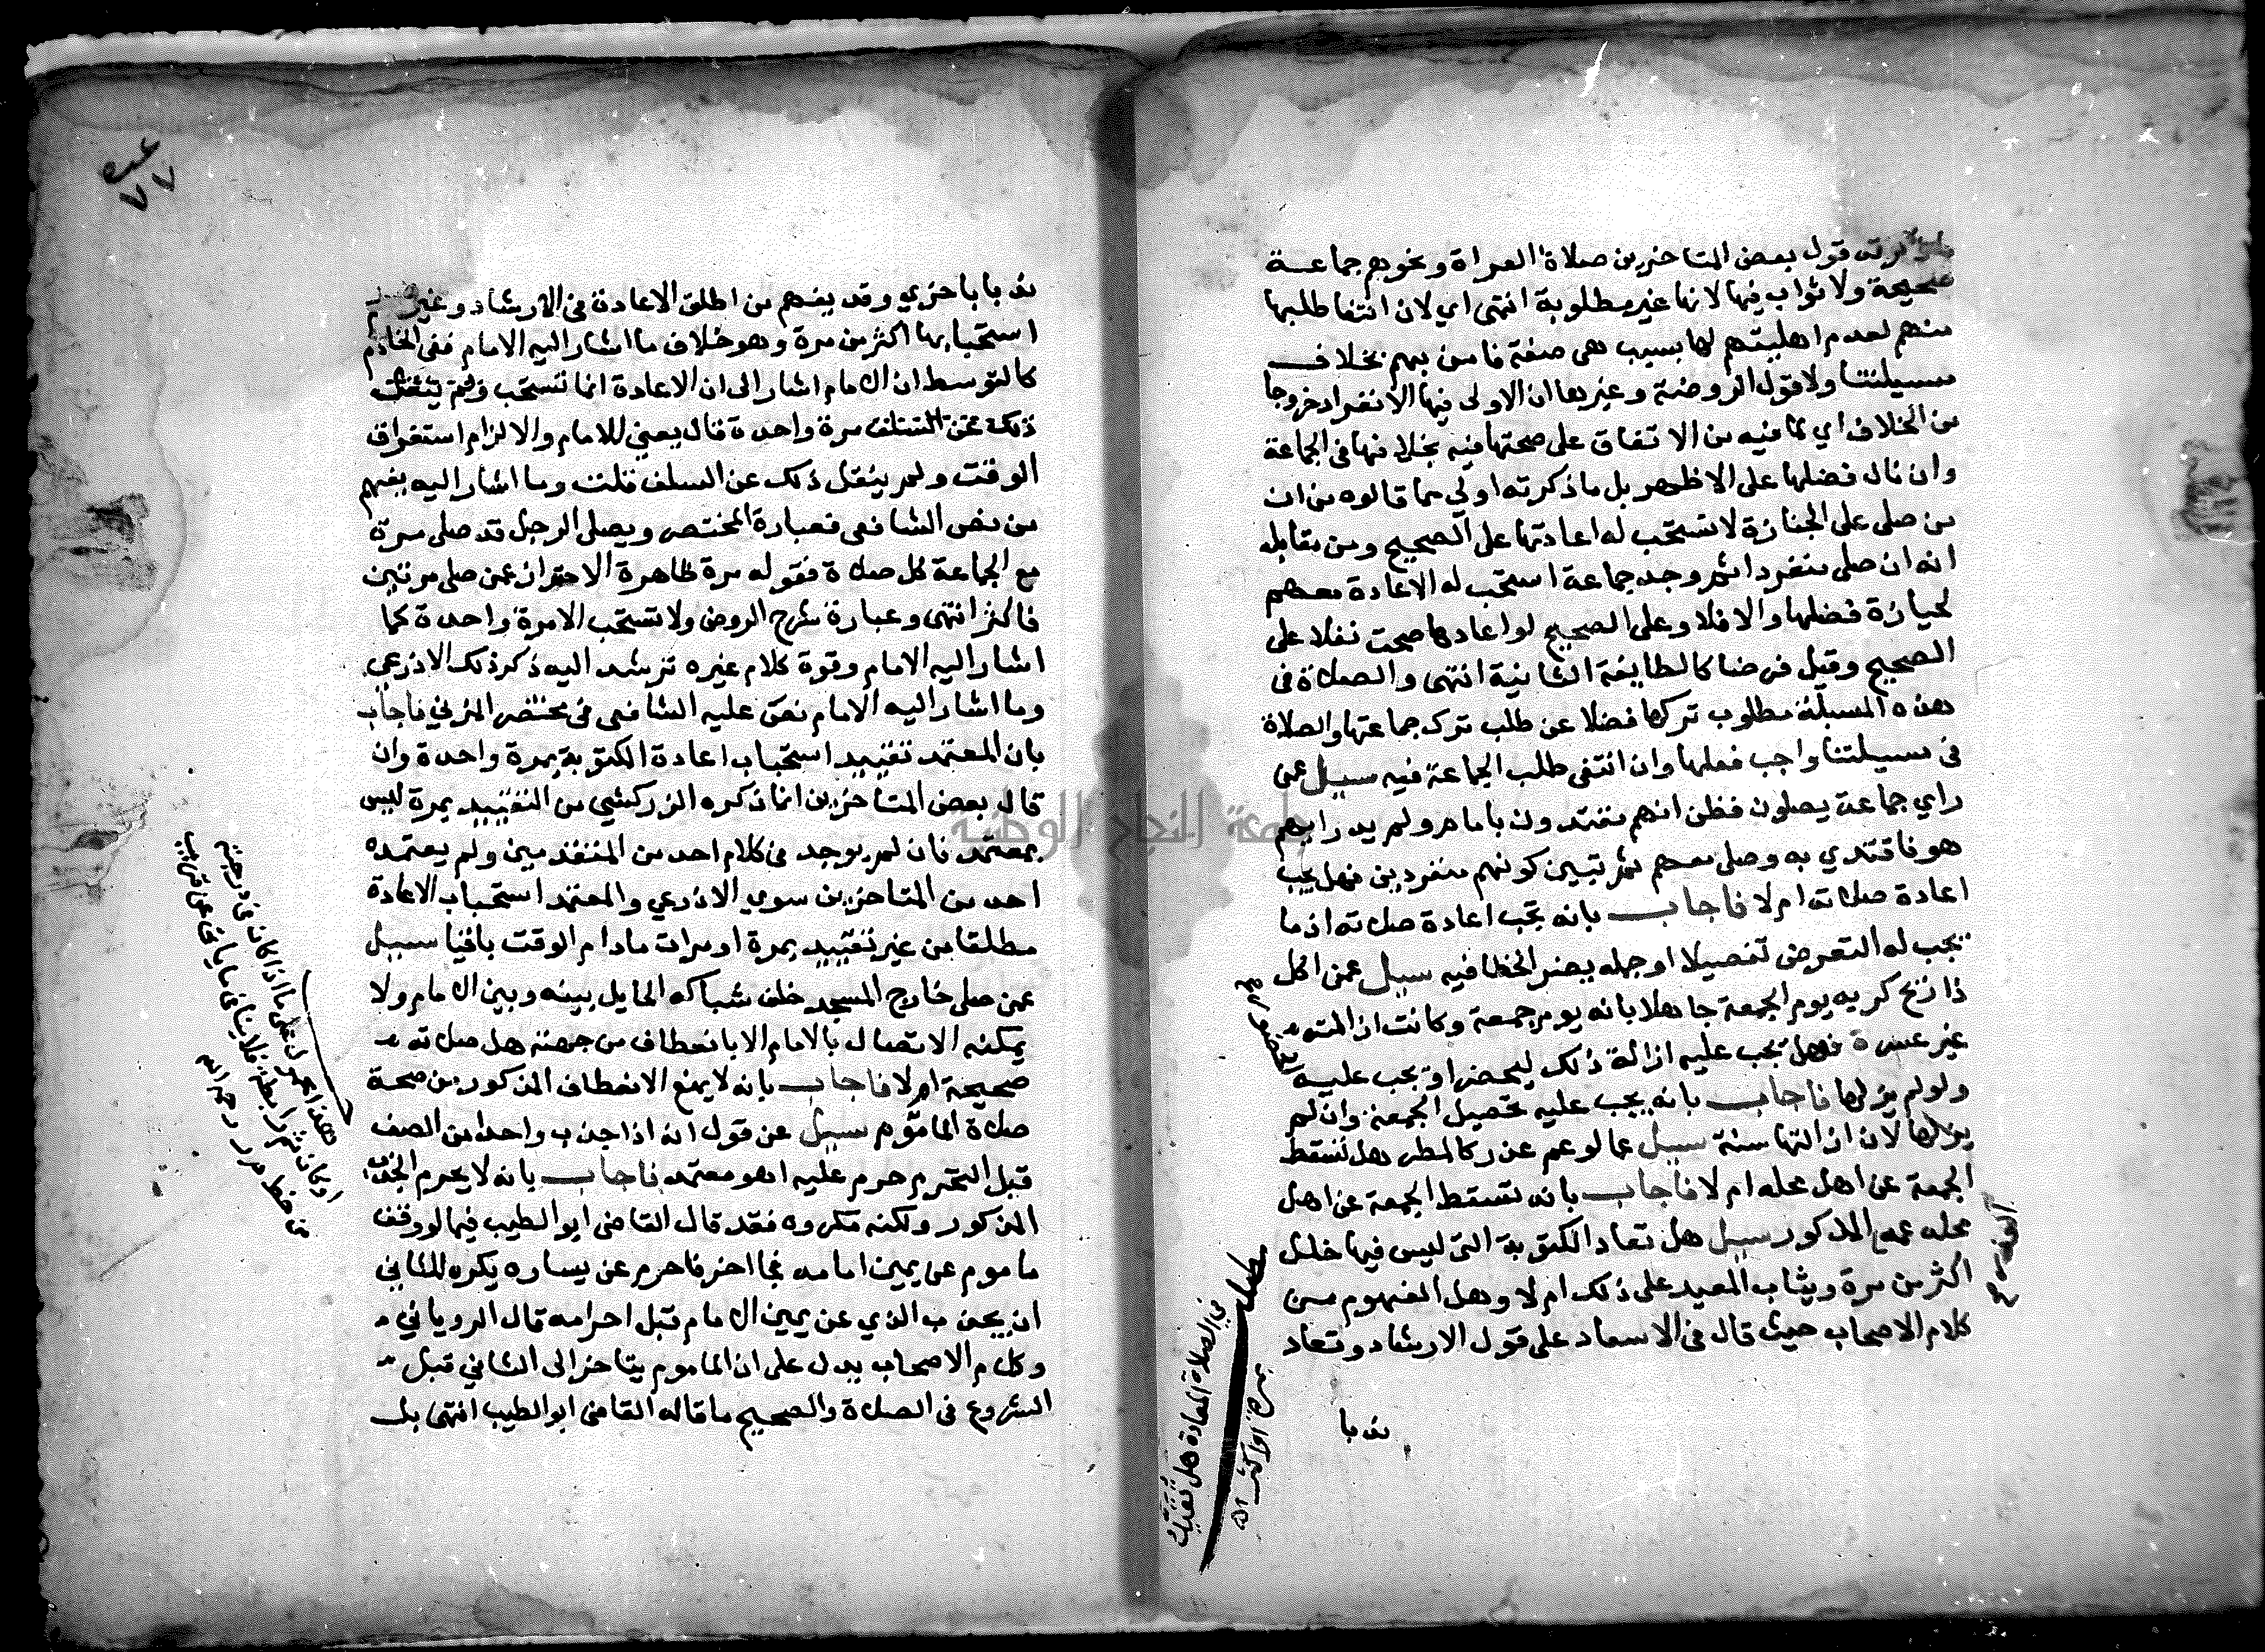 قول بعض المتاخرين صلاة العراة ونحوهم جماعة
صحيحة ولا ثواب فيها لانها غير مطلوبة انتهى اي لان انتفا طلبها
منهم لعدم اهليتهم لها بسبب هى صفة قامت بهم بخلاف
مسيلتنا ولا قول الروضة وغيرها ان الاولى فيها الانفراد خروجا
من الخلاف اي لما فيه من الاتفاق على صحتها فيه بخلافها فى الجماعة
وان نال فضلها على الاظهر بل ما ذكرته اولي مما قالوه من ان
من صلى على الجنازة لا تستحب له اعادتها على الصحيح ومن مقابله
انه ان صلى منفردا ثم وجد جماعة استحب له الاعادة معهم
لحيازة فضلها والا فلا وعلى الصحيح لو اعادها صحت نفلا على
الصحيح وقيل فرضا كالطايفة الثانية انتهى والصلاة فى
هذه المسيلة مطلوب تركها فضلا عن طلب ترك جماعتها والصلاة
فى مسيلتنا واجب فعلها وان انتفى طلب الجماعة فيه سيل عن
راي جماعة يصلون فظن انهم مقتدون بامام ولم يدر ايهم
هو فاقتدي به وصلى معهم ثم تبين كونهم منفردين فهل يجب
اعادة صلاته ام لا فاجاب بانه تجب اعادة صلاته اذ ما
يجب له التعرض تفصيلا او جمله يضر الخطا فيه سيل عمن اكل
ذا ريح كريه يوم الجمعة جاهلا بانه يوم جمعة وكانت ازالته
غير عسرة فهل تجب عليه ازالة ذلك ليحضر او تجب عليه
ولو لم يزلها فاجاب بانه يجب عليه تحصيل الجمعة وان لم
يزلها لان ازالتها سنة سيل عما لو عم عذر كالمطر هل تسقط
الجمعة عن اهل محله ام لا فاجاب بانه تسقط الجمعة عن اهل
محله عمه المذكور سيل هل تعاد المكتوبة التى ليس فيها خلل
اكثر من مرة ويثاب المعيد على ذلك ام لا وهل المفهوم من
كلام الاصحاب حيث قال فى الاسعاد على قول الارشاد وتعاد
ندبا
فى الصلاة المعادة هل تتقيد
بمرة او اكثر اه
ندبا باخري وقد يفهم من اطلق الاعادة فى الارشاد وغيره
استحبابها اكثر من مرة وهو خلاف ما اشار اليه الامام ففى الخادم
كالتوسط ان الامام اشار الى ان الاعادة انما تستحب ولم ينقل
ذلك عن السلف مرة واحدة قال يعني للامام والا لزم استغراق
الوقت ولم ينقل ذلك عن السلف قلت وما اشار اليه يفهم
من نص الشافعى فعبارة المختصر ويصلى الرجل قد صلى مرة
مع الجماعة كل صلاة فقوله مرة ظاهرة الاحتراز عمن صلى مرتين
فاكثر انتهى وعبارة شرح الروض ولا تستحب الا مرة واحدة كما
اشار اليه الامام وقوة كلام غيره ترشد اليه ذكر ذلك الاذرعى
وما اشار اليه الامام نص عليه الشافعى فى مختصر المزني فاجاب
بان المعتمد تقييد استحباب اعادة المكتوبة بمرة واحدة وان
قال بعض المتاخرين ان ما ذكره الزركشي من التقييد بمرة ليس
بمعتمد فان لم يوجد فى كلام احد من المتقدمين ولم يعتمده
احد من المتاخرين سوي الاذرعي والمعتمد استحباب الاعادة
مطلقا من غير تقييد بمرة او مرات مادام الوقت باقيا سيل
عمن صلى خارج المسجد خلف شباكه الحايل بينه وبين الامام ولا
يمكنه الاتصال بالامام الا بانعطاف من جهته هل صلاته
صحيحة ام لا فاجاب بانه لا يمنع الانعطاف المذكور من صحة
صلاة الماموم سيل عن قول انه اذا جذب واحدا من الصف
قبل التحرم حرم عليه اهو معتمد فاجاب بانه لا يحرم الجذب
المذكور ولكنه مكروه فقد قال القاضى ابو الطيب فيما لو وقف
ماموم عن يمين امامه فجا اخر فاحرم عن يساره يكره للثاني
ان يجذب الذي عن يمين الامام قبل احرامه قال الروياني
وكلام الاصحاب يدل على ان الماموم يتاخر الى الثاني قبل
الشروع فى الصلاة والصحيح ما قاله القاضى ابو الطيب انتهى بل
٧٧
هذا محمول على ما اذا كان فى رحبته
جامعة النجاح الوطنية